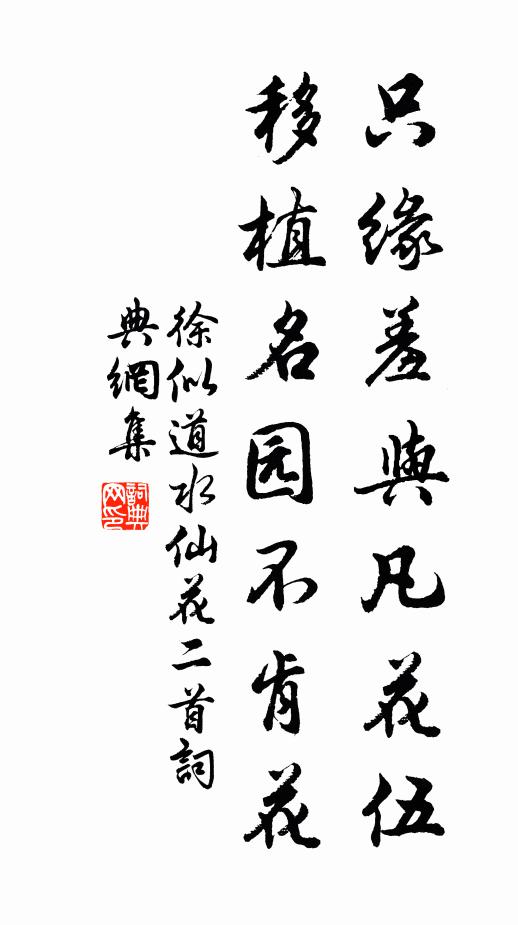 只缘羞與凡花伍
移植名园不肯花
徐似道水仙花二首詞
典網集
詞典
网印